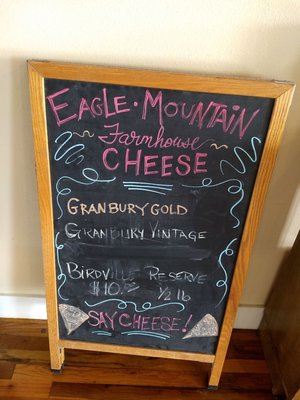 EAGLE · MOUNTAIN
Farmhouse
CHEESE
GRANBURY GOLD
GRANBURY VINTAGE
BIRDVILLE RESERVE
$10.00 ½ lb
SAY CHEESE!